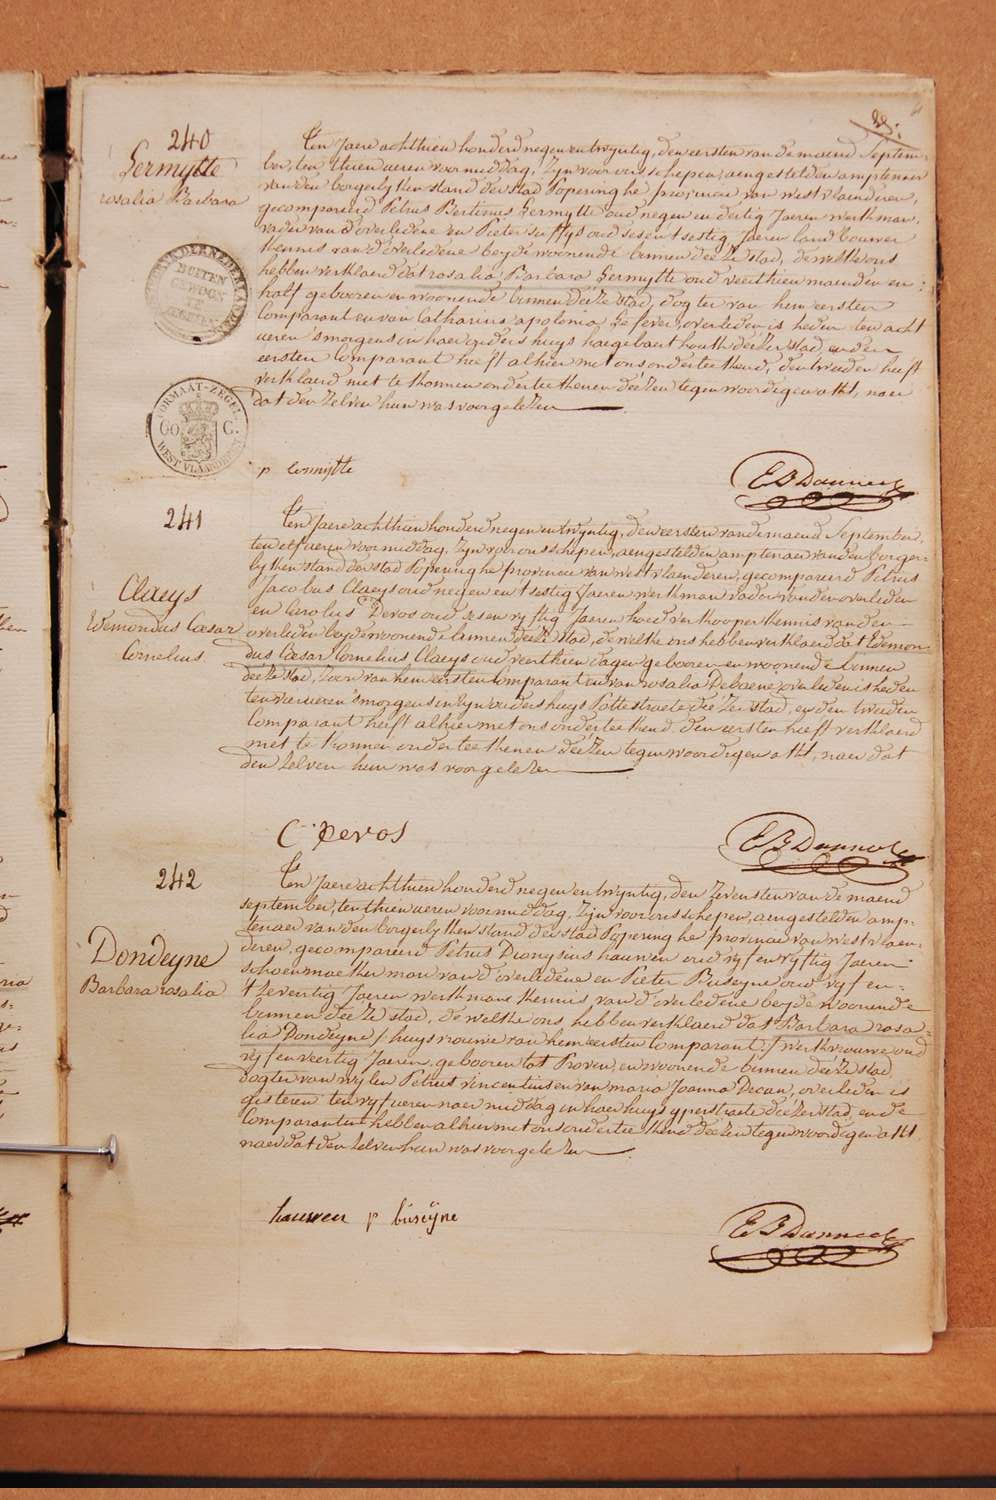 240
Lermytte
rosalia Barbara
Ten Jaere achthien honderd negen en twyntig, den eersten van de maend Septem-
ber, ten thien ueren voormiddag, Zyn voor ons schepen, aengestelden amptenaer
van den borgerlyken stand der stad Poperinghe provincie van westvlaenderen,
gecompareerd Petrus Bertinus Lermytte oud negen en dertig Jaeren werkman,
vader van d'overledene en Pieter oud sesentsestig Jaeren landbouwer
kennis van d'overledene beyde woonende binnen deéze stad, dewelke ons
hebben verklaerd dat rosalia Barbara Lermytte oud veerthien maenden en :
half gebooren en woonende binnen deéze stad, dogter van hem eersten
Comparant en van Catharina apolonia Lefever, overleden is heden ten acht
ueren smorgens in haer ouders huys deézer stad, en den
eersten Comparant heeft alhier met ons onderteekend, den tweeden heeft
verklaerd niet te konnen onderteekenen deézen tegenwoordigen akt, naer
dat den zelven hun was voorgelezen
BUITEN
GEWOON
FORMAAT-ZEGEL
60 C.
WEST VLAANDEREN
p Lermijtte
E B Danneel
241
Claeys
Edmondus Cæsar
Cornelius
Ten Jaere achthien honderd negen en twyntig, den eersten van de maend September,
ten elf ueren voormiddag, Zyn voor ons schepen, aengestelden amptenaer van den borger-
lyken stand der stad Poperinghe provincie van westvlaenderen, gecompareerd Petrus
Jacobus Claeys oud negen en t'sestig Jaeren werkman vader van den overleden
en Carolus Devos oud sesen vyftig Jaeren hoedverkooper kennis van den
overleden beyde woonende binnen deéze stad, de welke ons hebben verklaerd dat Edmon-
dus Cæsar Cornelius Claeys oud veerthien dagen gebooren en woonende binnen
deéze stad, zoon van hem eersten Comparant en van rosalia Debaene, overleden is heden
ten vier ueren smorgens in zyn ouders huys Pottestraete deézer stad, en den tweeden
Comparant heeft alhier met ons onderteekend den eersten heeft verklaerd
niet te konnen onderteekenen deézen tegenwoordigen akt, naer dat
den zelven hun was voorgelezen
C: Devos
E B Danneel
242
Dondeyne
Barbara rosalia
Ten Jaere achthien honderd negen en twyntig, den zevensten van de maend
september, ten thien ueren voormiddag, Zyn voor ons schepen, aengestelden amp-
tenaer van den borgerlyken stand der stad Poperinghe provincie van westvlaen-
deren, gecompareerd Petrus Dionysius hauwen oud vyf en vyftig Jaeren
schoenmaeker man van d'overledene en Pieter Buseyne oud vyf en-
tseventig Jaeren werkman kennis van d'overledene beyde woonende
binnen deéze stad, de welke ons hebben verklaerd dat Barbara rosa-
lia Dondeyne / huysvrouwe van hem eersten Comparant / werkvrouwe oud
vyf en veertig Jaeren, gebooren tot Proven, en woonende binnen deéze stad
dogter van wylen Petrus vincentius en van maria Joanna Decan, overleden is
gisteren ten vyf ueren naermiddag in haer huys yperstraete deézer stad, en de
Comparanten hebben alhier met ons onderteekend deézen tegenwoordigen akt
naer dat den zelven hun was voorgelezen
hauwen p büseÿne
E B Danneel